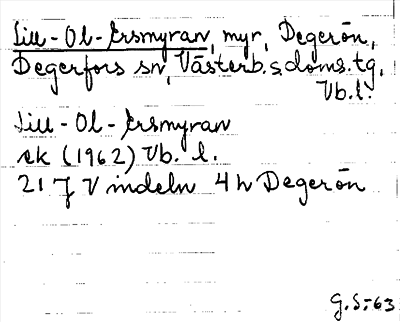 Lill-Ol-Ersmyran, myr, Degerön,
Degerfors sn, Västerb. s. doms. tg,
Vb. l.
Lill-Ol-Ersmyran
ek (1962) Vb. l.
21 J Vindeln 4 h Degerön
G. S-63